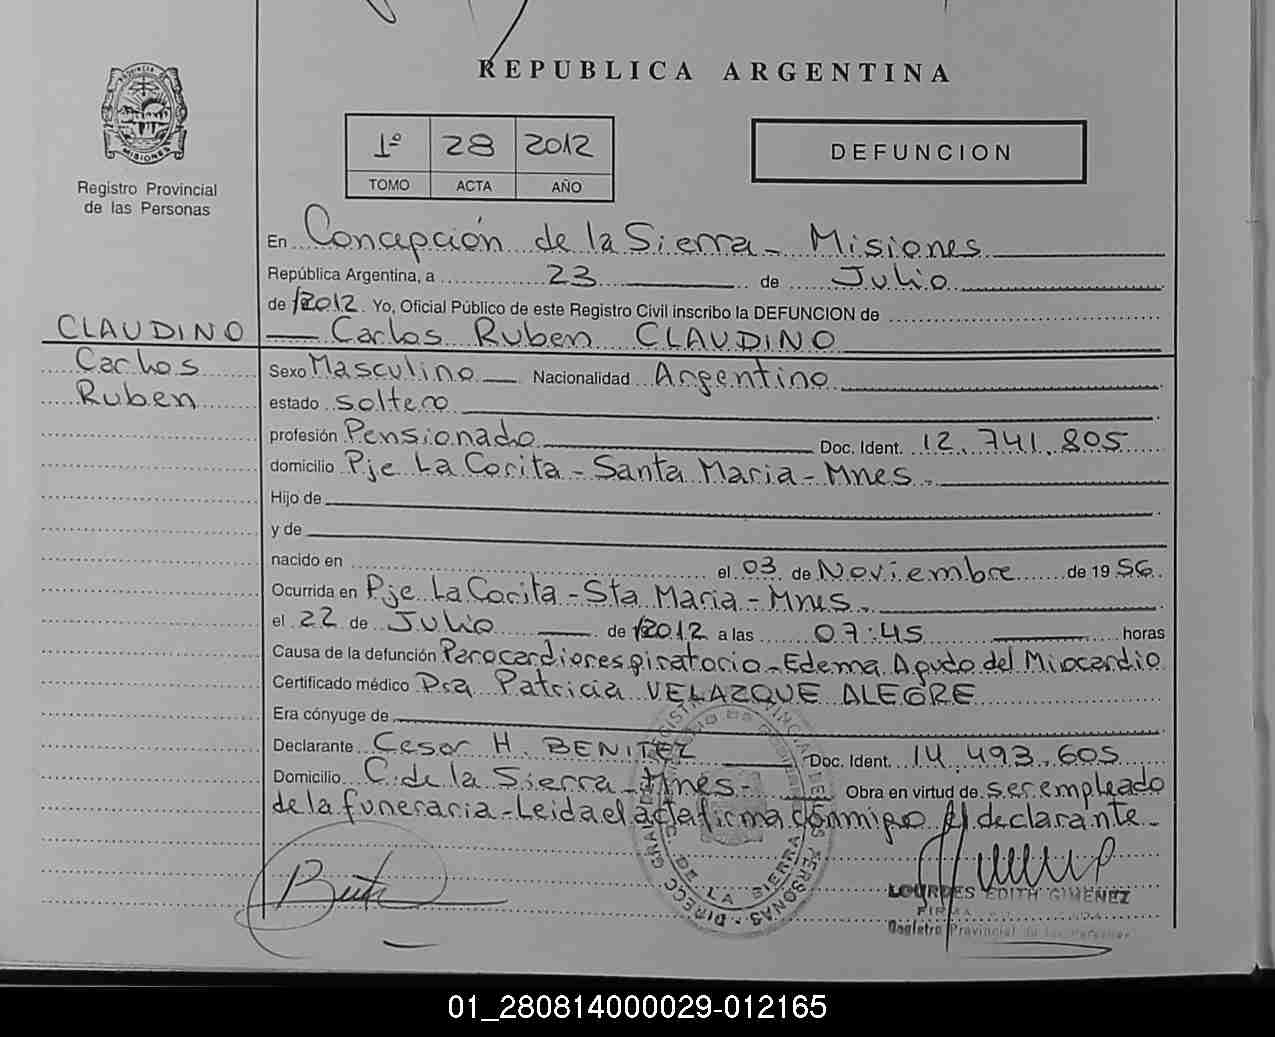 REPUBLICA ARGENTINA
PROVINCIA DE
MISIONES
Registro Provincial
de las Personas
1º 28 2012
TOMO ACTA AÑO
DEFUNCION
En Concepción de la Sierra - Misiones
República Argentina, a 23 de Julio
de 2012. Yo, Oficial Público de este Registro Civil inscribo la DEFUNCION de
CLAUDINO
Carlos
Ruben
Carlos Ruben CLAUDINO
Sexo Masculino Nacionalidad Argentino
estado soltero
profesión Pensionado Doc. Ident. 12.741.805
domicilio Pje La Corita - Santa Maria - Mnes.
Hijo de
y de
nacido en el 03 de Noviembre de 1956.
Ocurrida en Pje La Corita - Sta Maria - Mnes.
el 22 de Julio de 2012 a las 07:45 horas
Causa de la defunción Parocardiorespiratorio - Edema Agudo del Miocardio
Certificado médico Dra Patricia VELAZQUE ALEGRE
Era cónyuge de
Declarante Cesar H. BENITEZ Doc. Ident. 14.493.605
Domicilio C. de la Sierra - Mnes - Obra en virtud de ser empleado
de la funeraria - Leida el acta firma conmigo el declarante -
DE LA SIERRA
LOURDES EDITH GIMENEZ
Registro Provincial de las Personas
01_280814000029-012165